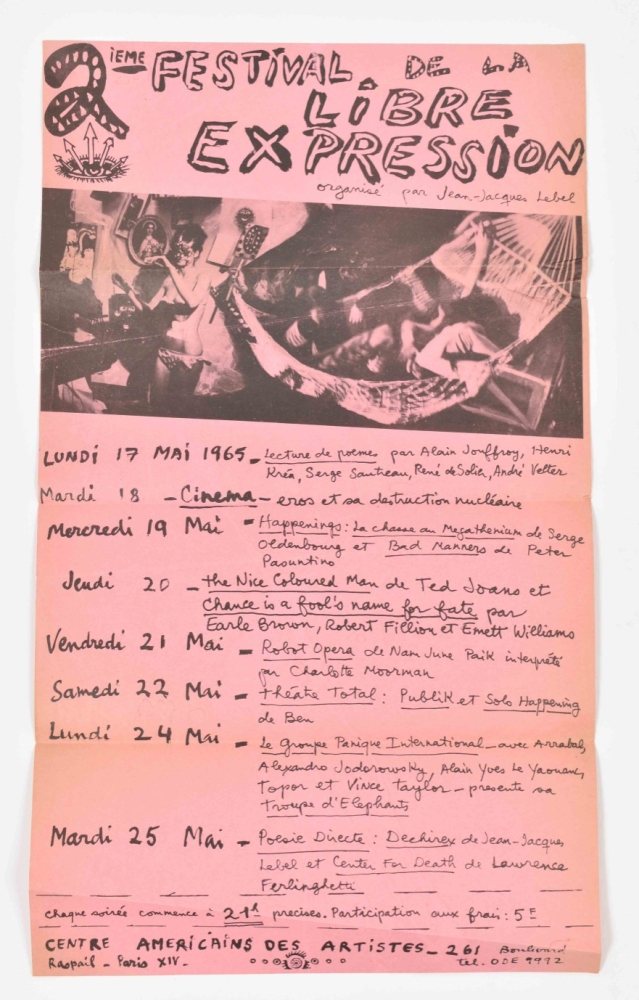 2ieme FESTIVAL DE LA
LiBRE
EXPRESSION
organisé par Jean-Jacques Lebel
LUNDI 17 MAI 1965 - Lecture de poemes par Alain Jouffroy, Henri
Kréa, Serge Sautreau, René de Solier, André Velter
Mardi 18 - Cinema - eros et sa destruction nucléaire
Mercredi 19 Mai - Happenings: La chasse au Megathenium de Serge
Oldenbourg et Bad Manners de Peter
Pasuntino
Jeudi 20 - the Nice Coloured Man de Ted Joans et
Chance is a fool's name for fate par
Earle Brown, Robert Fillion et Emett Williams
Vendredi 21 Mai - Robot Opera de Nam June Paik interprété
par Charlotte Moorman
Samedi 22 Mai - théâte Total: Publik et Solo Happening
de Ben
Lundi 24 Mai - Le Groupe Panique International - avec Arrabal,
Alexandro Jodorowsky, Alain Yves Le Yaouanc,
Topor et Vince Taylor - presente sa
Troupe d'Elephants
Mardi 25 Mai - Poesie Directe: Dechirex de Jean-Jacques
Lebel et Center For Death de Lawrence
Ferlinghetti
chaque soirée commence à 21h precises. Participation aux frais: 5F
CENTRE AMERICAINS DES ARTISTES - 261 Boulevard
Raspail - Paris XIV - tel. ODE 9992